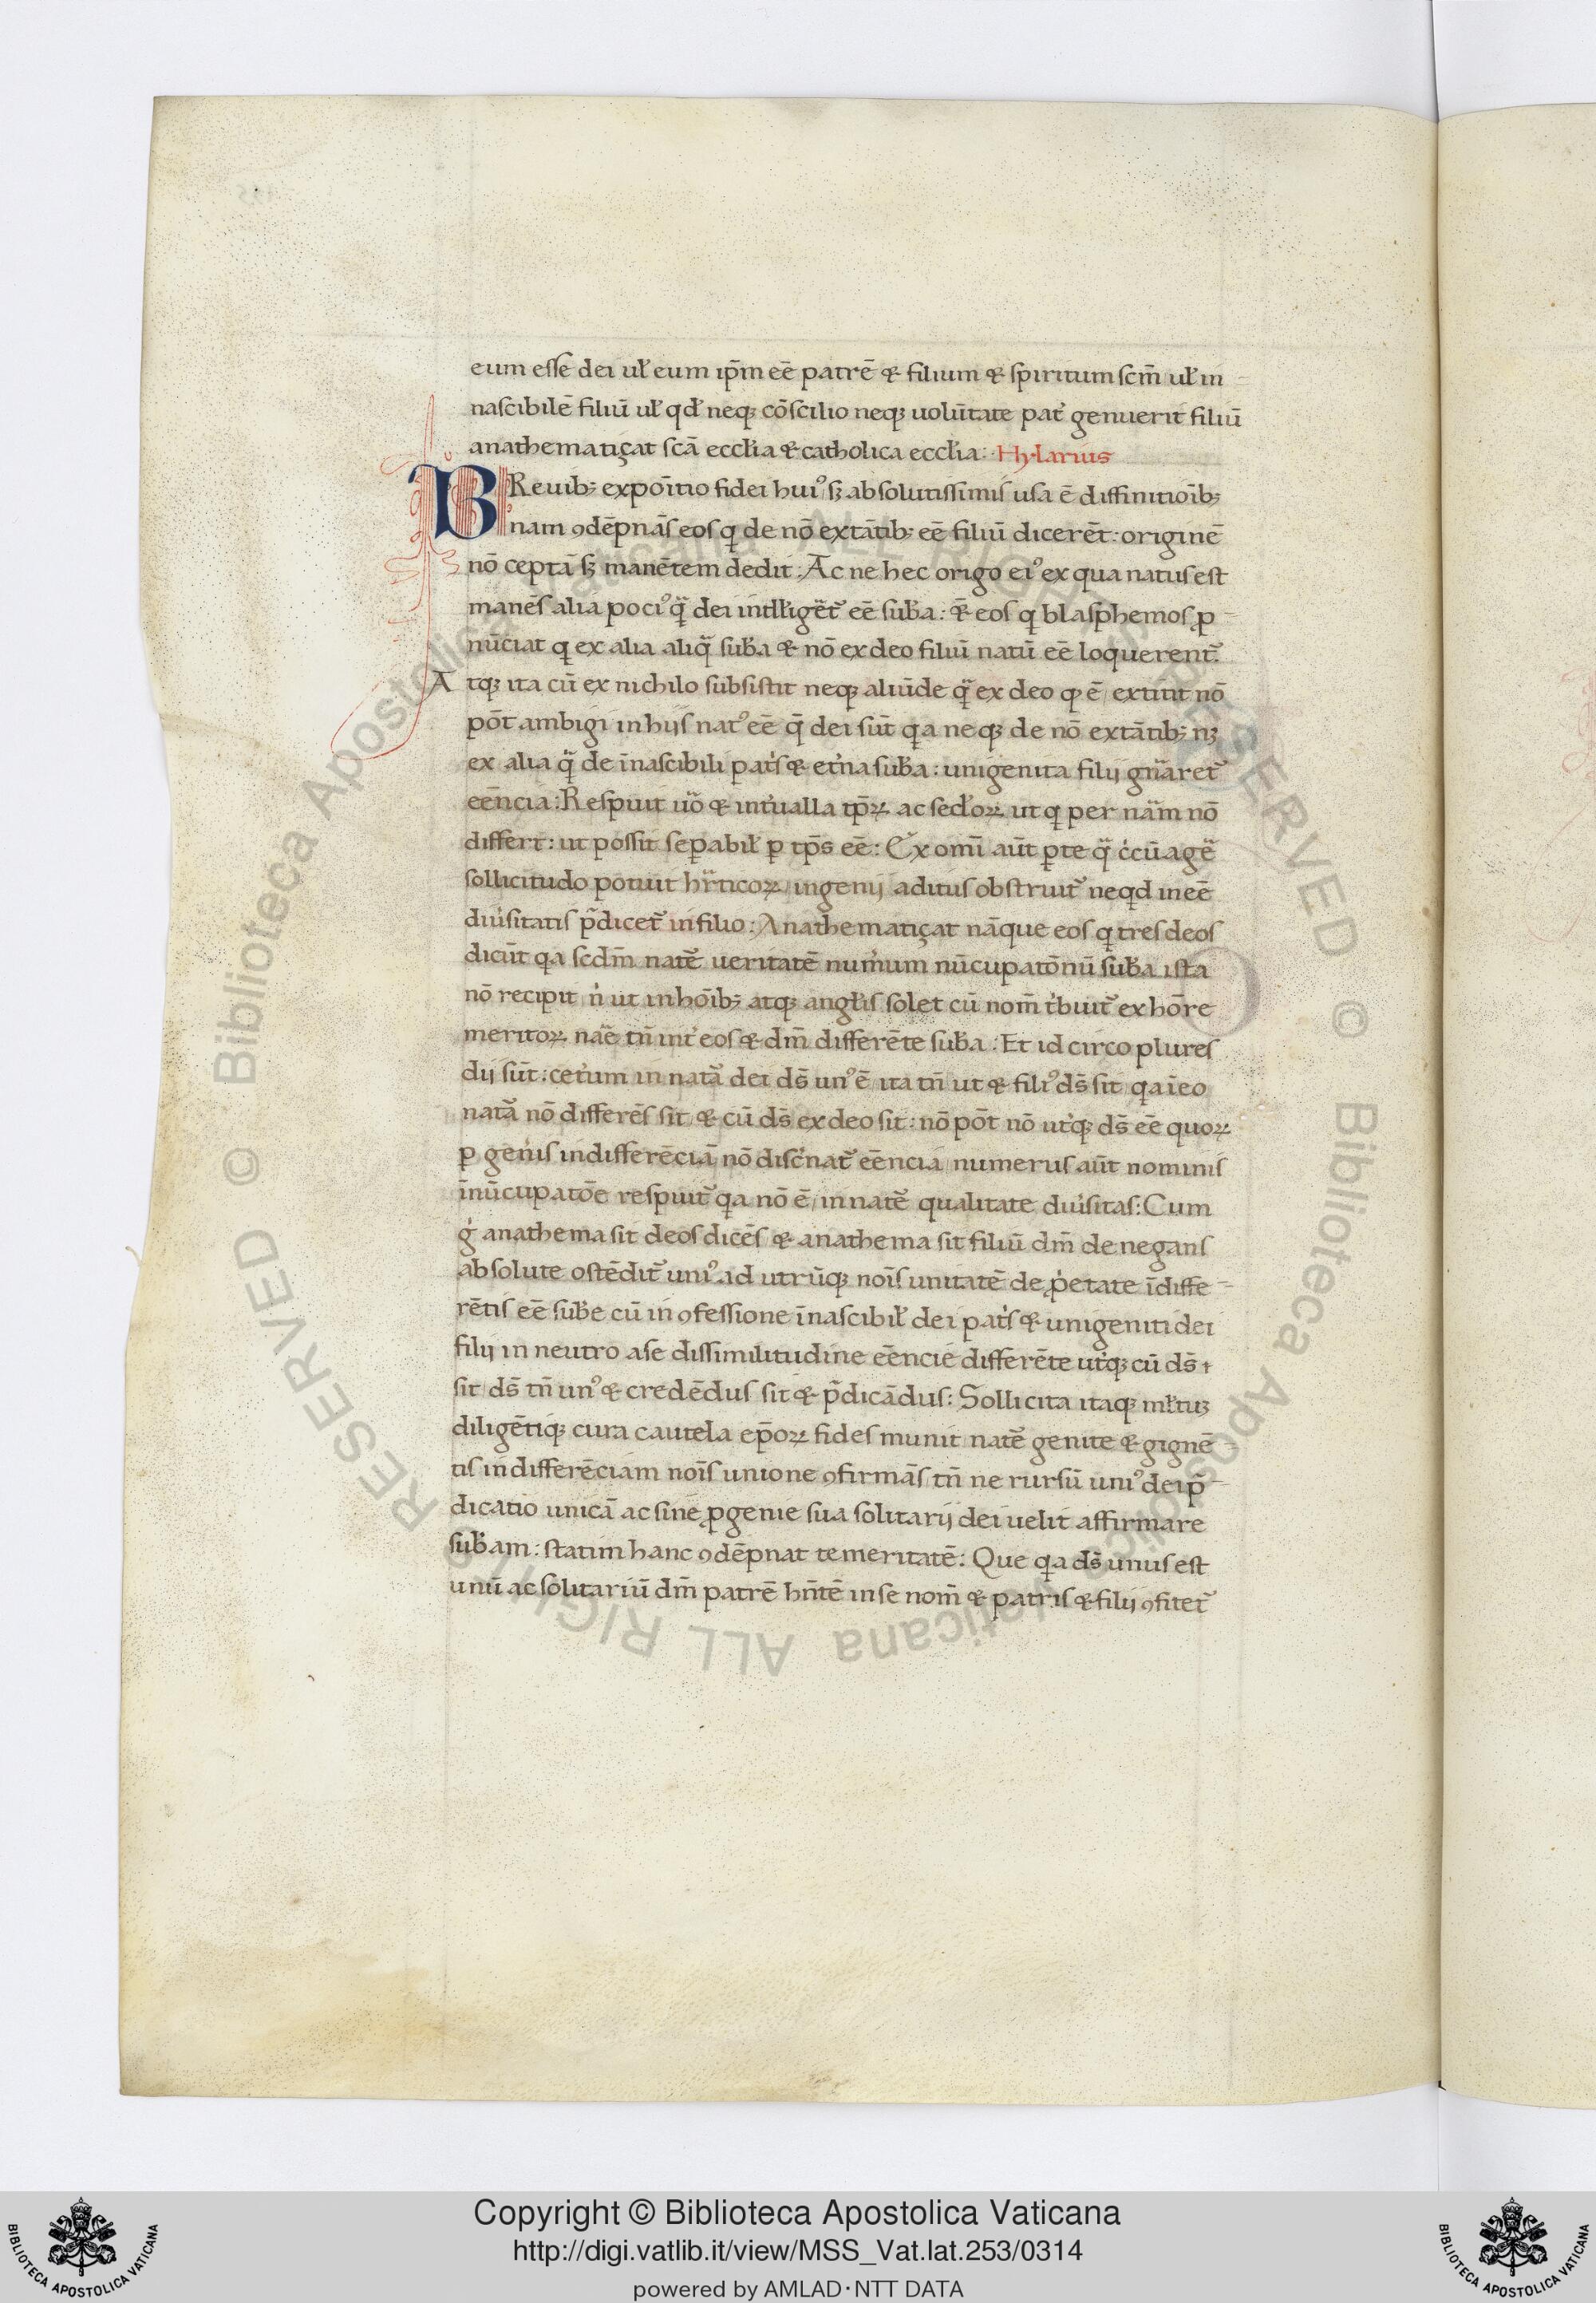 eum esse dei ul̄ eum ip̄m eē patrē & filium & spiritum scm̄ ul̄ in-
nascibilē filiū ul̄ qd̄ neqꝫ cōscilio neqꝫ uolūtate pat̓ genuerit filiū
anathematiçat scā eccl̄ia & catholica eccl̄ia: Hylarius
BReuib; expoītio fidei huiꝰ sꝫ absolutissimis usa ē diffinitioīb;
nam ꝯdēpnās eos q̇ de nō extātib; eē filiū dicerēt: originē
nō ceptā sꝫ manētem dedit: Ac ne hec origo eiꝰ ex qua natus est
manēs alia pociꝰ q̃ dei intll̄iget᷑ eē sub̄a: & eos q̇ blasphemos ꝓ-
nūciat q̇ ex alia aliq̃ sub̄a & nō ex deo filiū natū eē loquerent᷑.
Atqꝫ ita cū ex nichilo subsistit neqꝫ aliūde q̃ ex deo qꝫ ē extitit nō
pōt ambigi in hijs natꝰ eē q̄ dei sūt qa neqꝫ de nō extātib; nꝫ
ex alia q̃ de īnascibili pat̓s & et̓na sub̄a: unigenita filij gn̄aret᷑
eēncia: Respuit uō & int̓ualla tp̄ꝝ ac sed̄oꝝ ut q̇ per nām nō
differt: ut possit sepabil̄ p tp̄s eē: Ex omī aūt ꝑte q̃ c̓cūagē
sollicitudo potuit hr̄ticoꝝ ingenij aditus obstruit᷑ neqd in eē
diu̓sitatis p̄dicet᷑ in filio: Anathematiçat nāque eos q̇ tres deos
dicūt qa scdm̄ natē ueritatē num̓um nūcupatōnū sub̄a ista
nō recipit n̓ ut in hōib; atqꝫ angl̄is solet cū nom̄ t̓buit᷑ ex hōre
meritoꝝ naē tn̄ int̓ eos & dm̄ differēte sub̄a: Et id circo plures
dij sūt: cet̓um in natā dei ds̄ unꝰ ē ita tn̄ ut & filiꝰ ds̄ sit qa ī eo
natā nō differēs sit & cū ds̄ ex deo sit: nō pōt nō ut̓qꝫ ds̄ eē quoꝝ
ꝑ gen̓is indifferēciā nō disc̓nat᷑ eēncia numerus aūt nominis
ī nūcupatōe respuit᷑ qa nō ē in natē qualitate diu̓sitas: Cum
g̓ anathema sit deos dicēs & anathema sit filiū dm̄ denegans
absolute ostēdit᷑ uniꝰ ad utrūqꝫ noīs unitatē de ꝓp̓etate īdiffe-
rētis eē sub̄e cū in ꝯfessione īnascibil̄ dei pat̓s & unigeniti dei
filij in neutro a se dissimilitudine eēncie differēte ut̓qꝫ cū ds̄
sit ds̄ tn̄ unꝰ & credēdus sit & p̄dicādus: Sollicita itaqꝫ ml̄tuꝫ
diligētiqꝫ cura cautela ep̄oꝝ fides munit natē genite & gignē-
tis indifferēciam noīs unione ꝯfirmās tn̄ ne rursū uniꝰ dei p̄-
dicatio unicā ac sine ꝓgenie sua solitarij dei uelit affirmare
sub̄am: statim hanc ꝯdēpnat temeritatē: Que qa ds̄ unus est
unū ac solitariū dm̄ patrē hn̄tē in se nom̄ & patris & filij ꝯfitet᷑
Copyright © Biblioteca Apostolica Vaticana
http://digi.vatlib.it/view/MSS_Vat.lat.253/0314
powered by AMLAD·NTT DATA
BIBLIOTECA APOSTOLICA VATICANA
BIBLIOTECA APOSTOLICA VATICANA
© Biblioteca Apostolica Vaticana ALL RIGHTS RESERVED
© Biblioteca Apostolica Vaticana ALL RIGHTS RESERVED